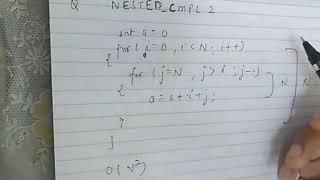 Q NESTED_CMPL 2
int a=0
for(i=0, i<N; i++)
{
for (j=N, j>i; j--) N N
{ a=a+i+j;
}
}
O(N²)